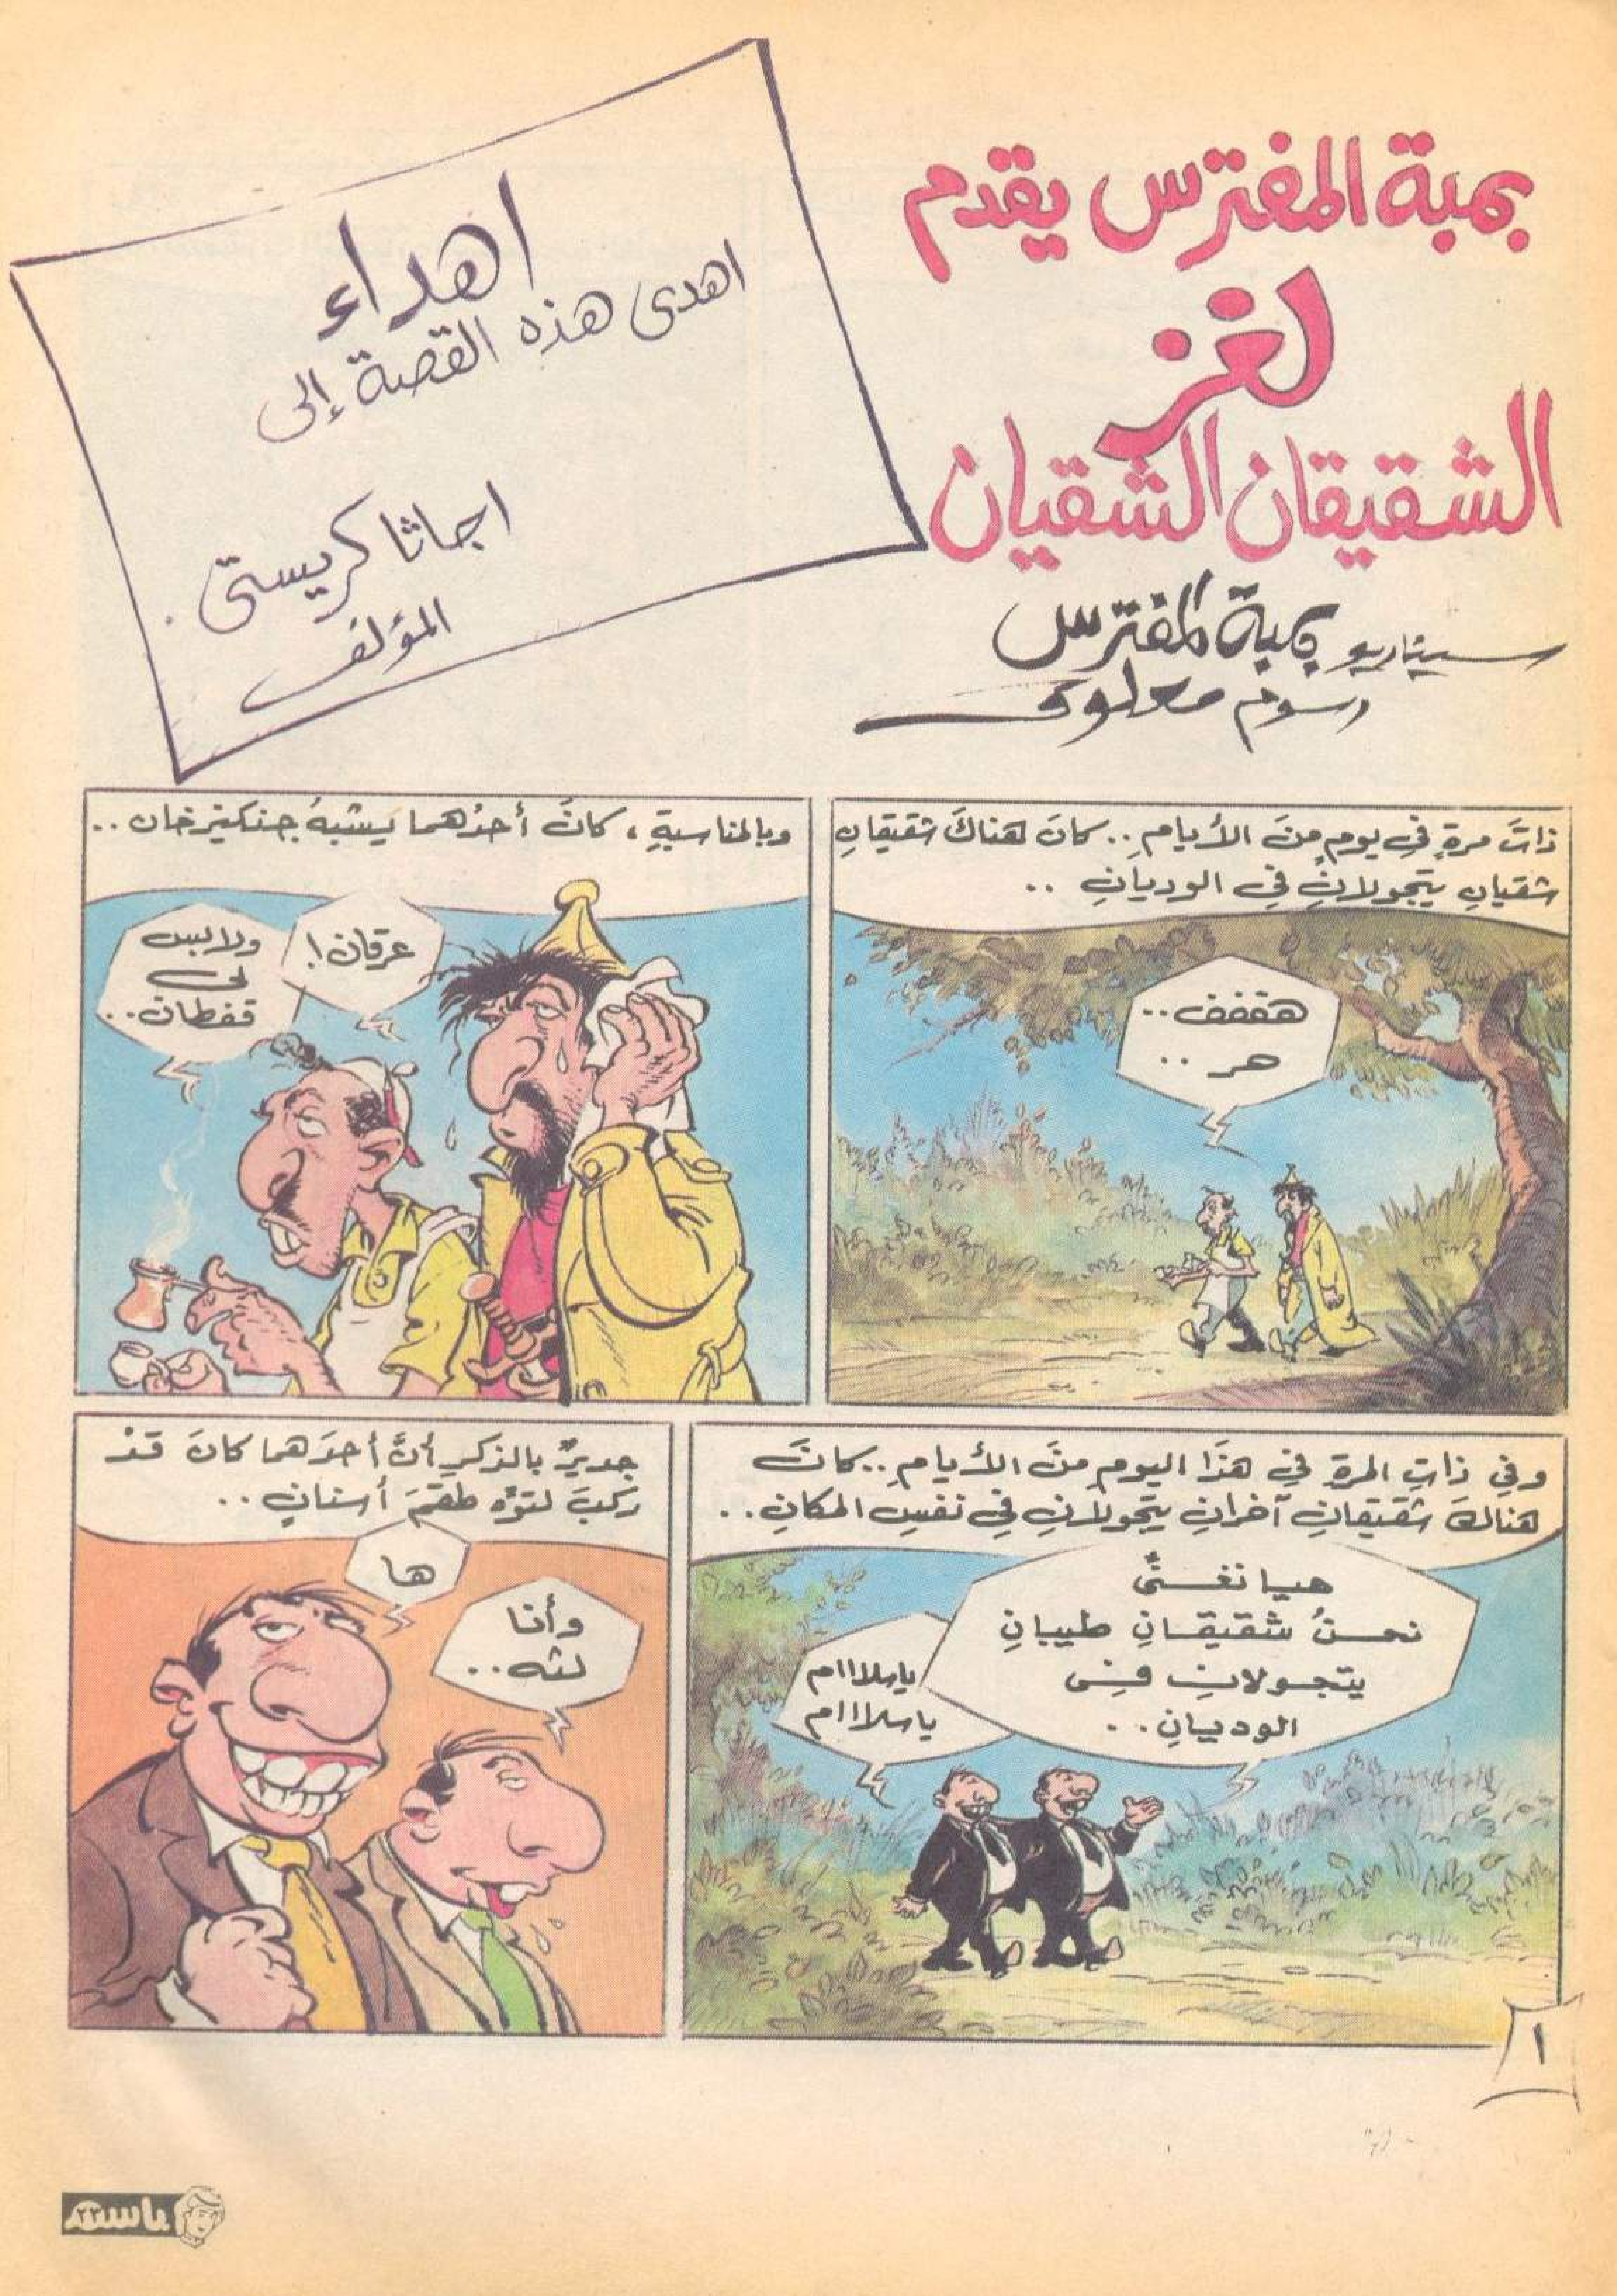 بمبة المفترس يقدم
لغز
الشقيقان الشقيان
سيناريو بمبة المفترس
رسوم معلوف
اهداء
اهدى هذه القصة إلى
اجاثا كريستى
المؤلف
ذاتَ مرةٍ في يومٍ منَ الأيامِ.. كانَ هناكَ شقيقانِ
شقيانِ يتجولانِ في الوديانِ ..
هففف..
هر ..
وبالمناسبةِ، كانَ أحدُهما يشبهُ جنكيزخان ..
عرقان!
ولابس
لى
قفطان..
وفي ذاتِ المرةِ في هذا اليومِ منَ الأيامِ.. كانَ
هنالكَ شقيقانِ آخرانِ يتجولانِ في نفسِ المكانِ..
هيا نغنى
نحنُ شقيقانِ طيبانِ
يتجولانِ فى
الوديانِ..
ياسلاااام
ياسلاااام
جديرٌ بالذكرِ أنَّ أحدَهما كانَ قدْ
ركبَ لتوِّه طقمَ أسنانٍ..
ها
وأنا
لثه..
١
باسم